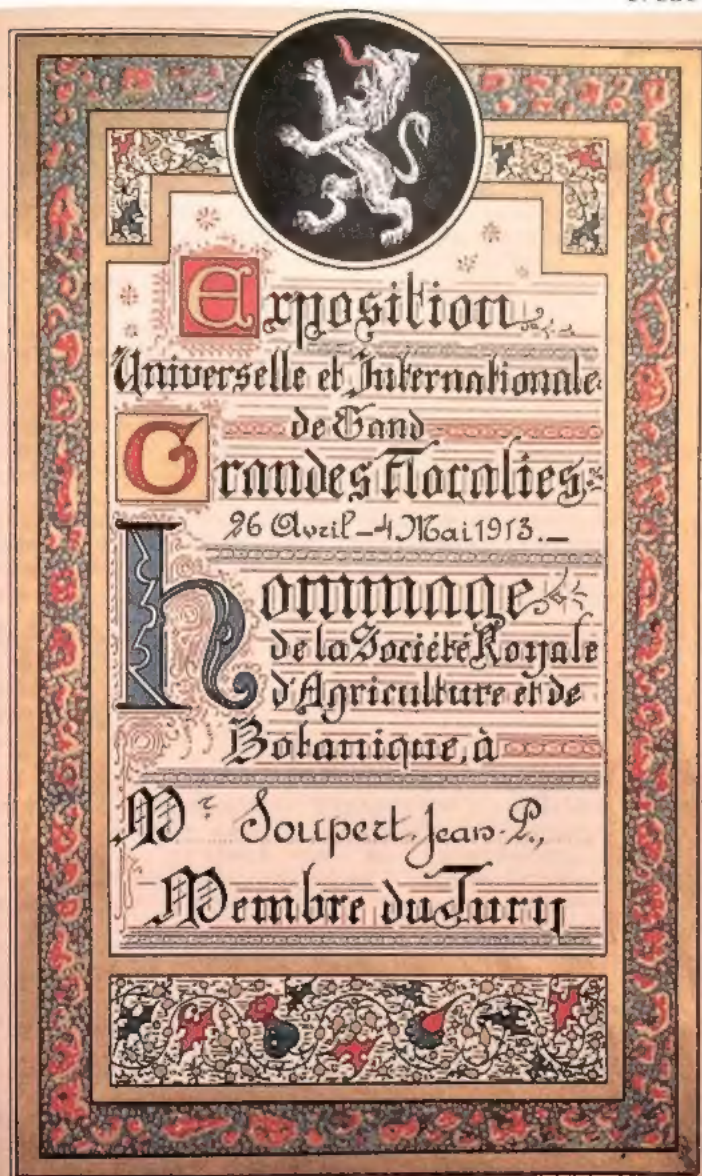 Exposition
Universelle et Internationale
de Gand
Grandes Floralies
26 Avril – 4 Mai 1913.
hommage
de la Société Royale
d'Agriculture et de
Botanique, à
Mr Soupert, Jean-P.,
Membre du Jury